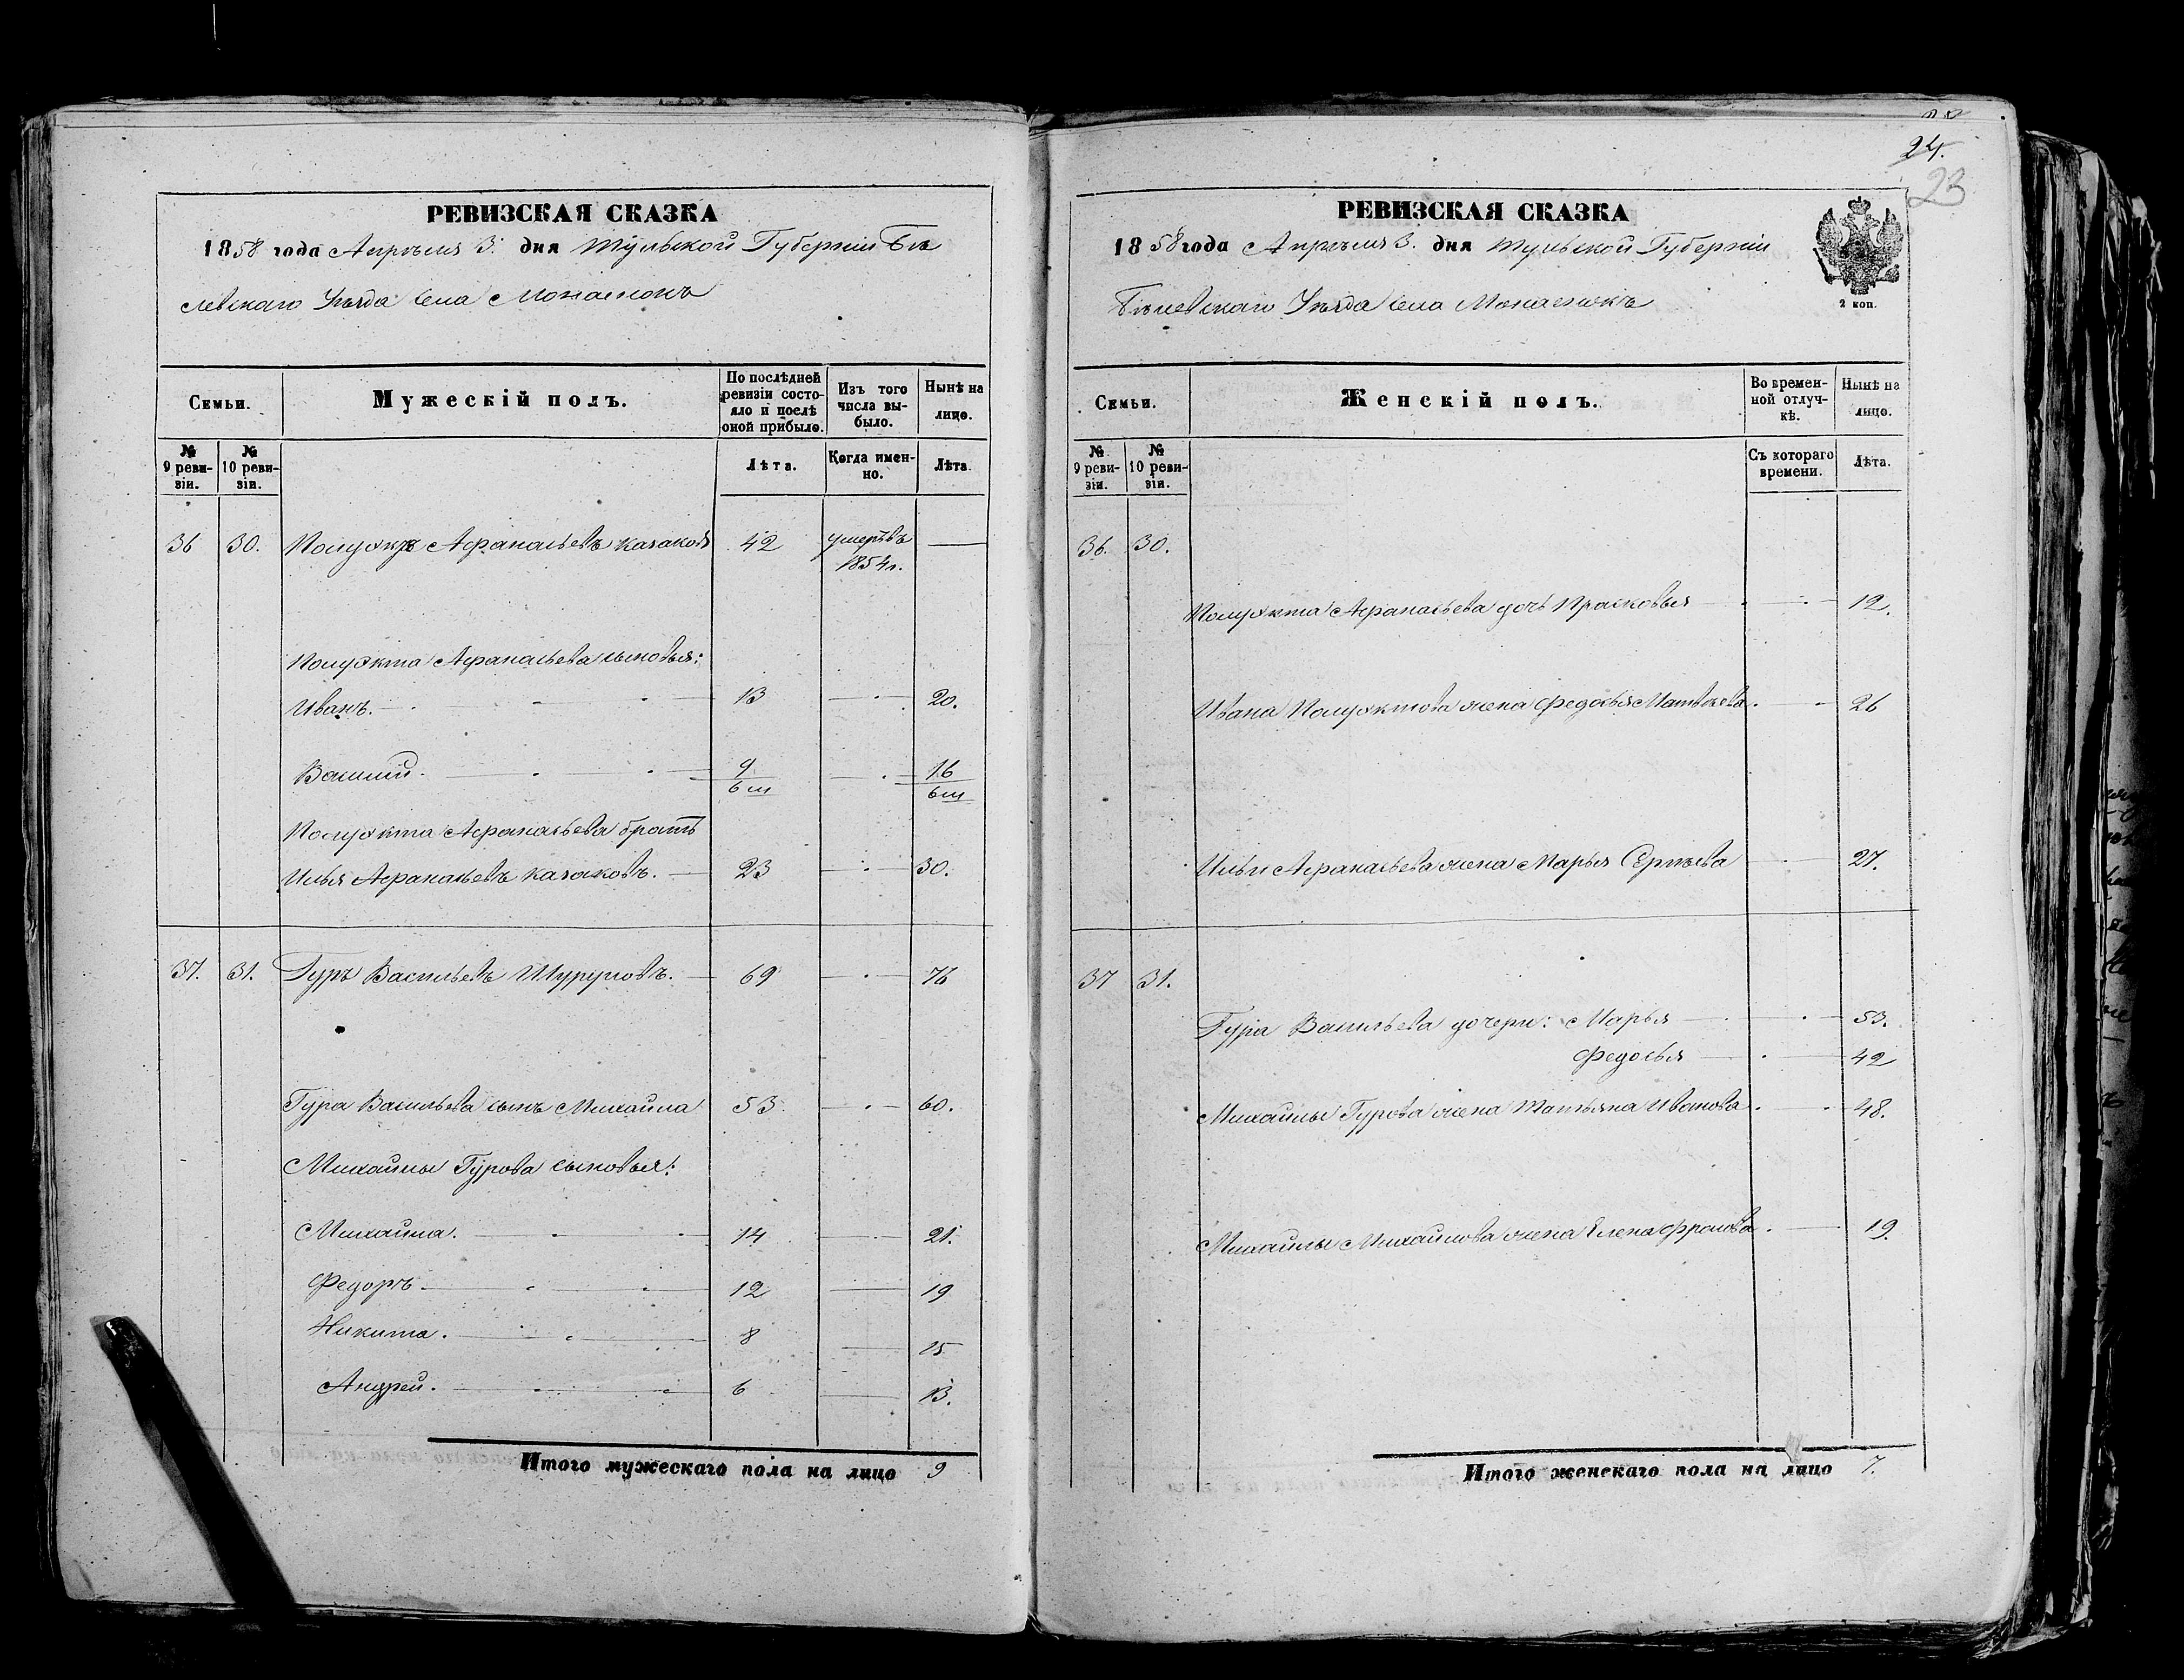 РЕВИЗСКАЯ СКАЗКА
1858 года Апрѣля 3. дня Тульской Губерніи Бѣ
левскаго Уѣзда села Монаенокъ
Семьи.
Мужескій полъ.
По послѣдней ревизіи состояло и послѣ оной прибыло.
Изъ того числа выбыло.
Нынѣ на лицо.
№ 9 ревизіи.
№ 10 ревизіи.
Лѣта.
Когда именно.
Лѣта.
36 30. Полуэктъ Афанасьевъ Казаковъ 42 умеръ въ
1854 г.
Полуэкта Афанасьева сыновья:
Иванъ. 13 20.
Василій. 9 16
6 м 6 м
Полуэкта Афанасьева братъ
Илья Афанасьевъ Казаковъ. 23 30.
37. 31. Гуръ Васильевъ Шуруповъ. 69 76
Гура Васильева сынъ Михаила 53 60.
Михаилы Гурова сыновья:
Михаила. 14 21.
Федоръ 12 19
Никита. 8 15
Андрей. 6 13.
Итого мужескаго пола на лицо 9
24.
23
РЕВИЗСКАЯ СКАЗКА
1858 года Апрѣля 3. дня Тульской Губерніи
Бѣлевскаго Уѣзда села Монаенокъ
2 коп.
Семьи.
Женскій полъ.
Во временной отлучкѣ.
Нынѣ на лицо.
№ 9 ревизіи.
№ 10 ревизіи.
Съ котораго времени.
Лѣта.
36. 30.
Полуэкта Афанасьева дочь Прасковья 12.
Ивана Полуэктова жена Федосья Матвѣева 26
Ильи Афанасьева жена Марья Сергѣева 27.
37 31.
Гура Васильева дочери: Марья 53.
Федосья 42
Михаилы Гурова жена Татьяна Иванова 48.
Михаилы Михайлова жена Елена Фролова 19.
Итого женскаго пола на лицо 7.